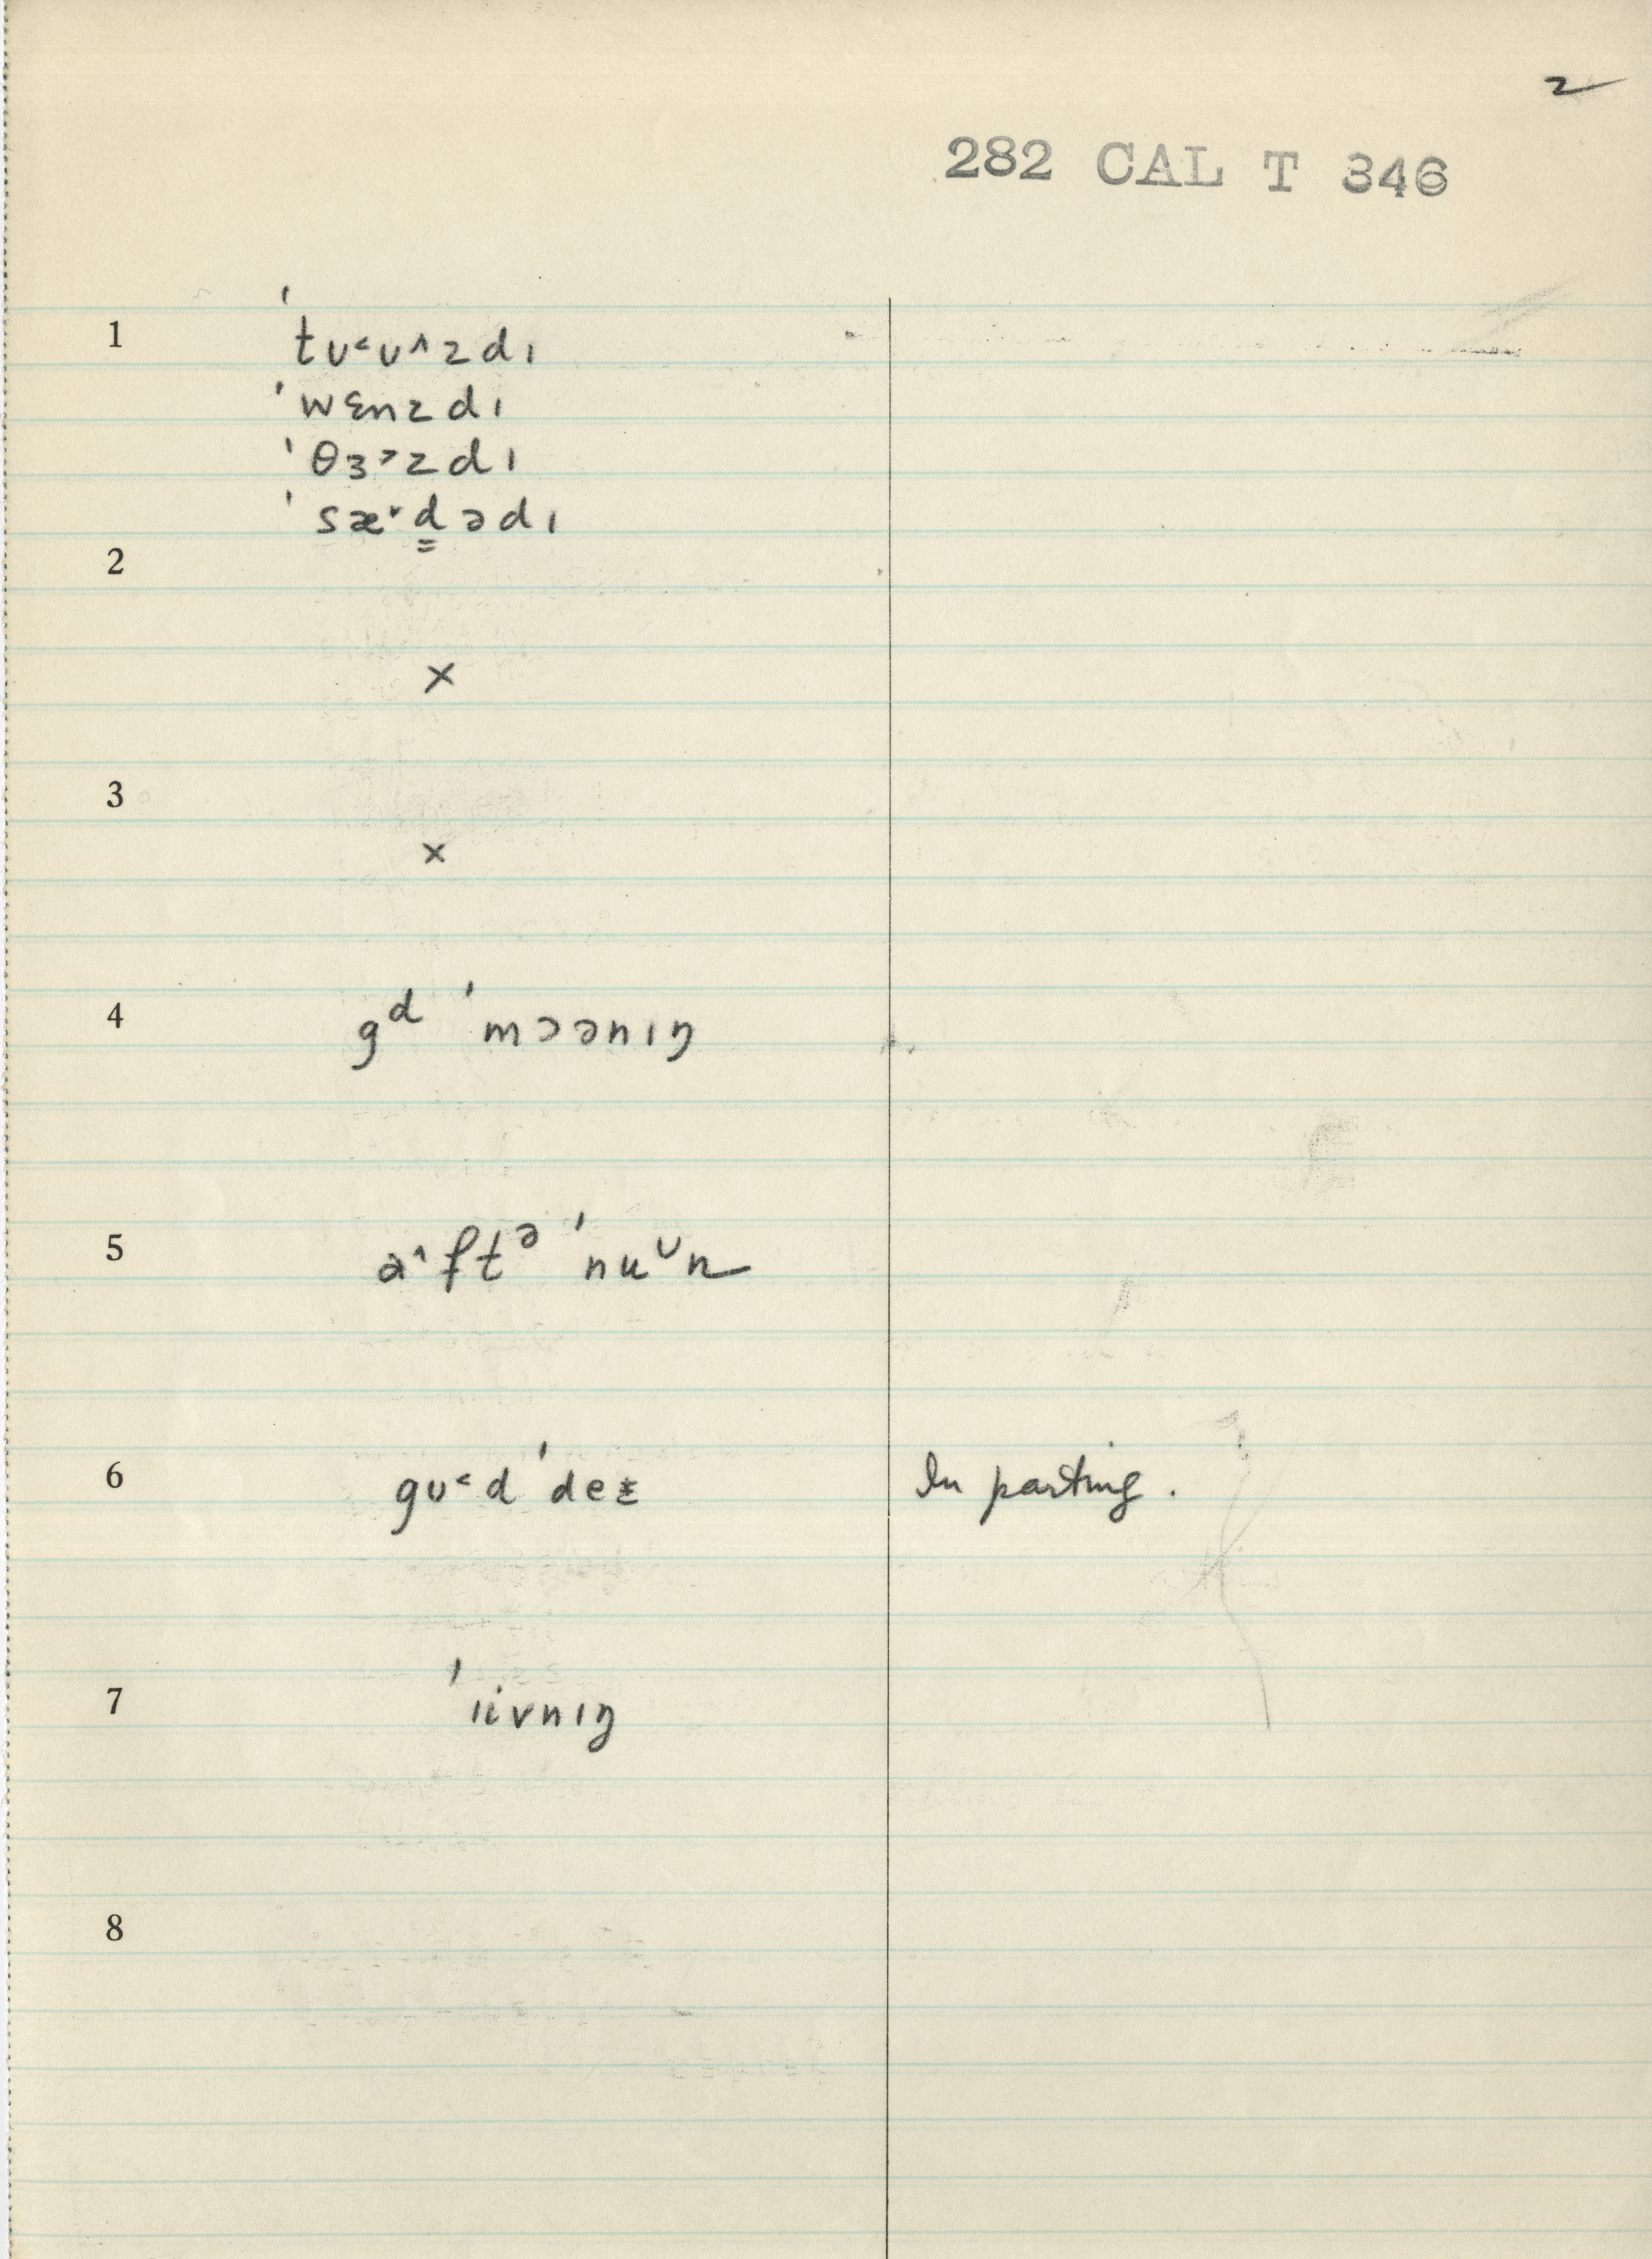 2
282 CAL T 346
1 ˈtʊ˂ʊ˄zdɪ
ˈwɛnzdɪ
ˈθɜ˃zdɪ
ˈsæ˅d̳ədɪ
2
×
3
×
4 gᵈ ˈmɔənɪŋ
5 a˄ftᵊ ˈnuᶸn
6 gʊ˂d ˈdeɪ In parting.
7 ˈɪivnɪŋ
8